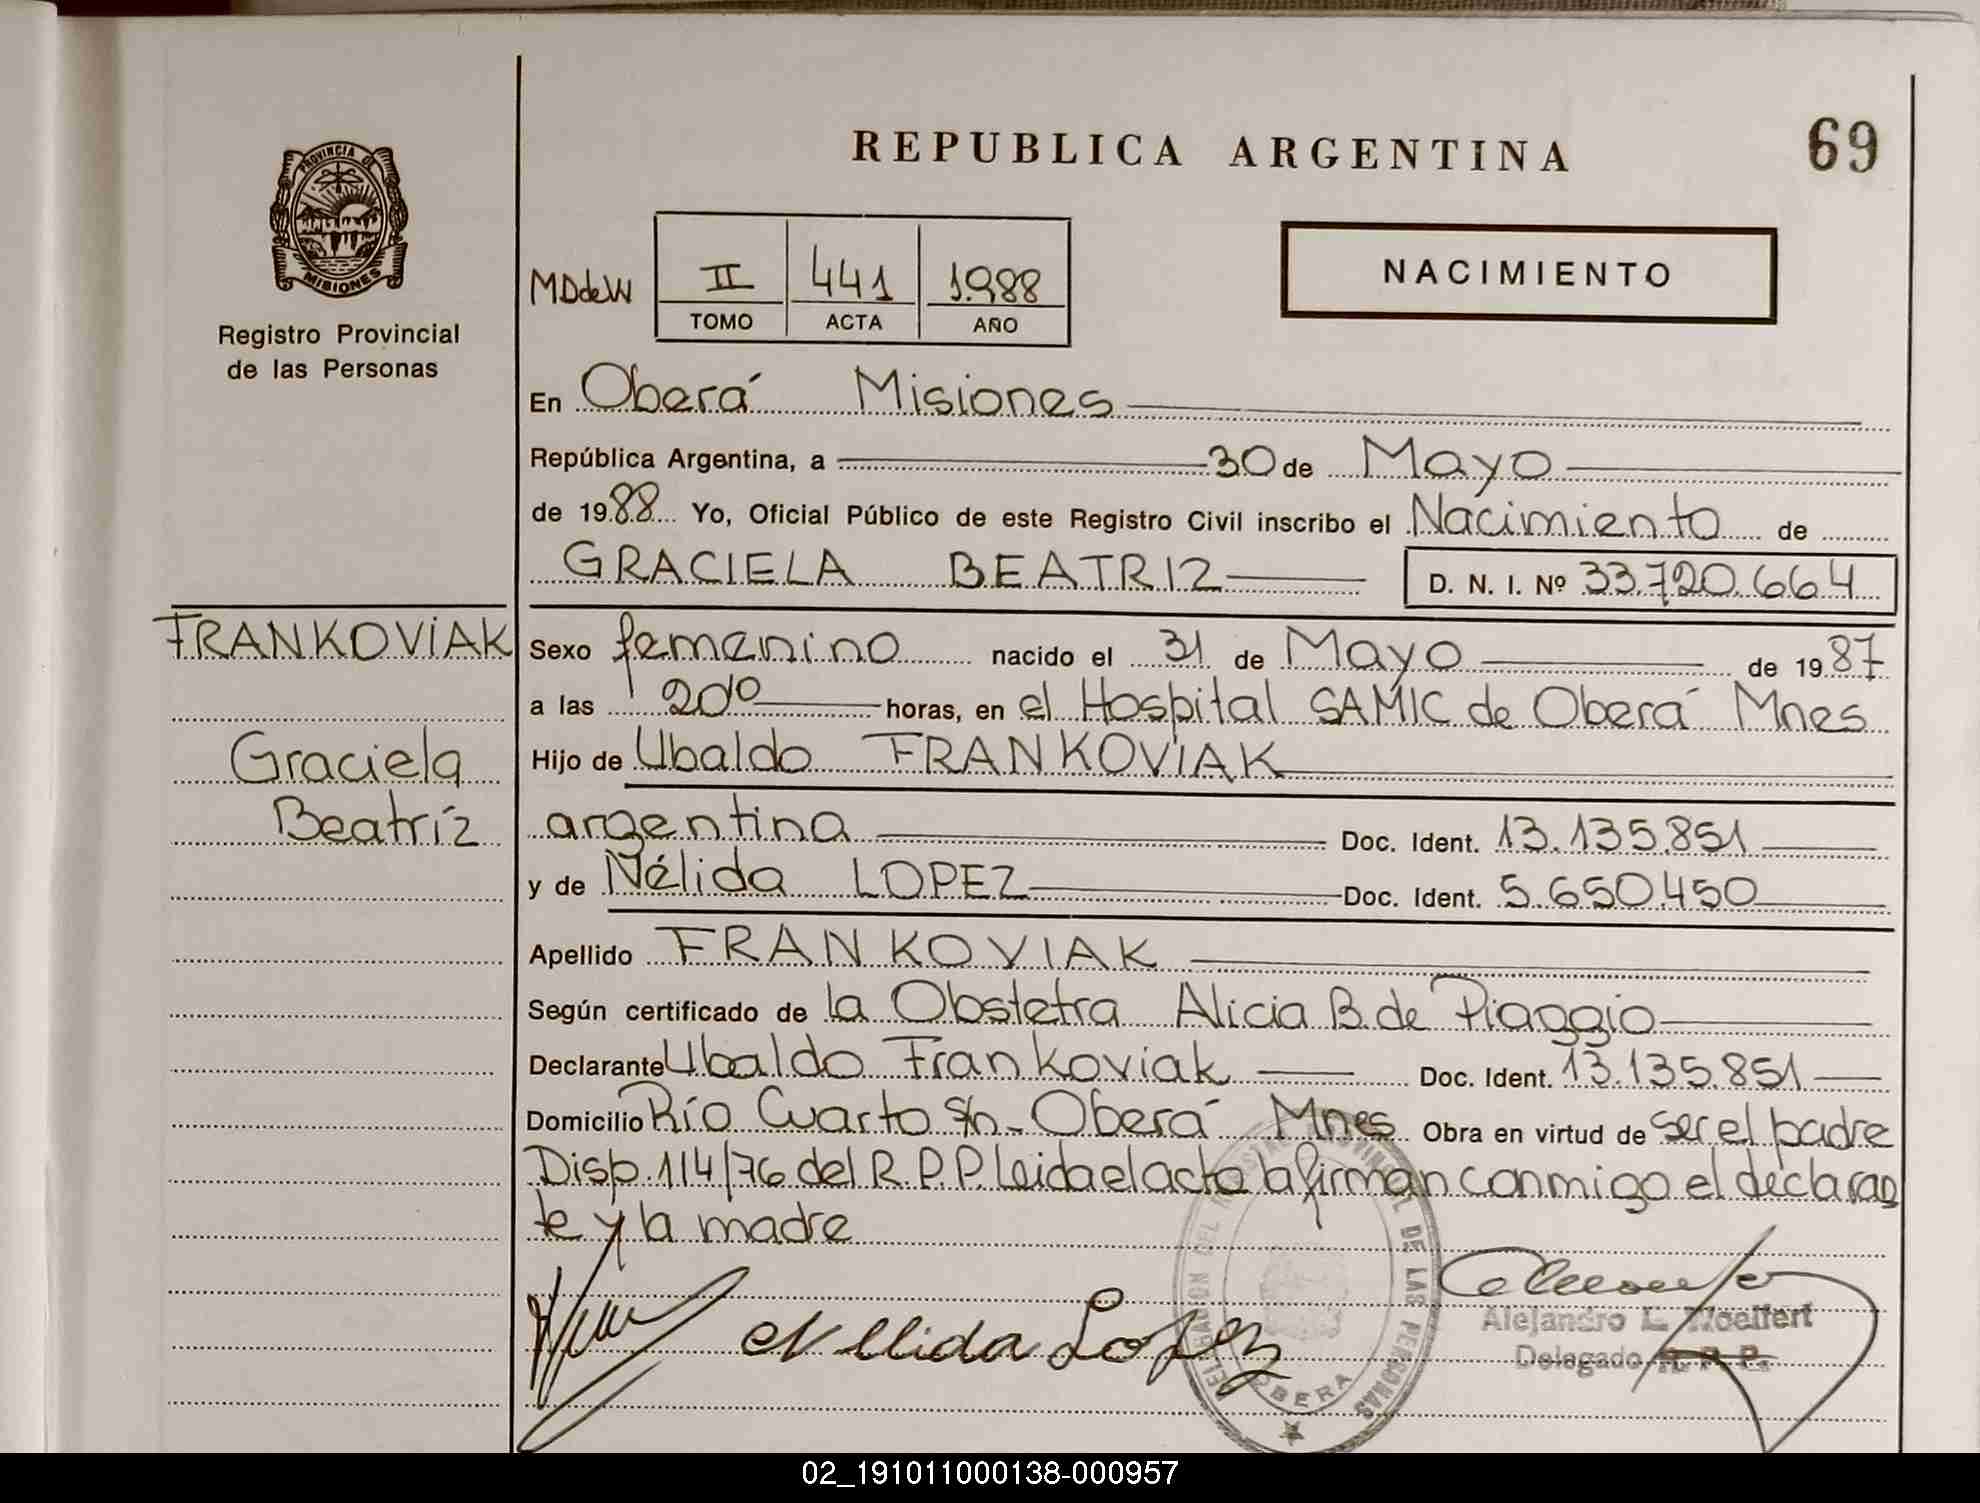 REPUBLICA ARGENTINA
69
PROVINCIA DE
MISIONES
Registro Provincial
de las Personas
MDdeW
II 441 1.988
TOMO ACTA AÑO
NACIMIENTO
En Oberá Misiones
República Argentina, a 30 de Mayo
de 1988 Yo, Oficial Público de este Registro Civil inscribo el Nacimiento de
GRACIELA BEATRIZ D. N. I. Nº 33.720.664
FRANKOVIAK
Graciela
Beatríz
Sexo femenino nacido el 31 de Mayo de 1987
a las 20do horas, en el Hospital SAMIC de Oberá Mnes
Hijo de Ubaldo FRANKOVIAK
argentina Doc. Ident. 13.135.851
y de Nélida LOPEZ Doc. Ident. 5.650.450
Apellido FRANKOVIAK
Según certificado de la Obstetra Alicia B. de Piaggio
Declarante Ubaldo Frankoviak Doc. Ident. 13.135.851
Domicilio Río Cuarto s/n - Oberá Mnes Obra en virtud de ser el padre
Disp. 114/76 del R.P.P. Leida el acta la firman conmigo el declaran
te y la madre
Nellida Lopez
DELEGACION DEL REGISTRO PROVINCIAL DE LAS PERSONAS
OBERA
Alejandro L. Woelfert
Delegado R. P. P.
02_191011000138-000957